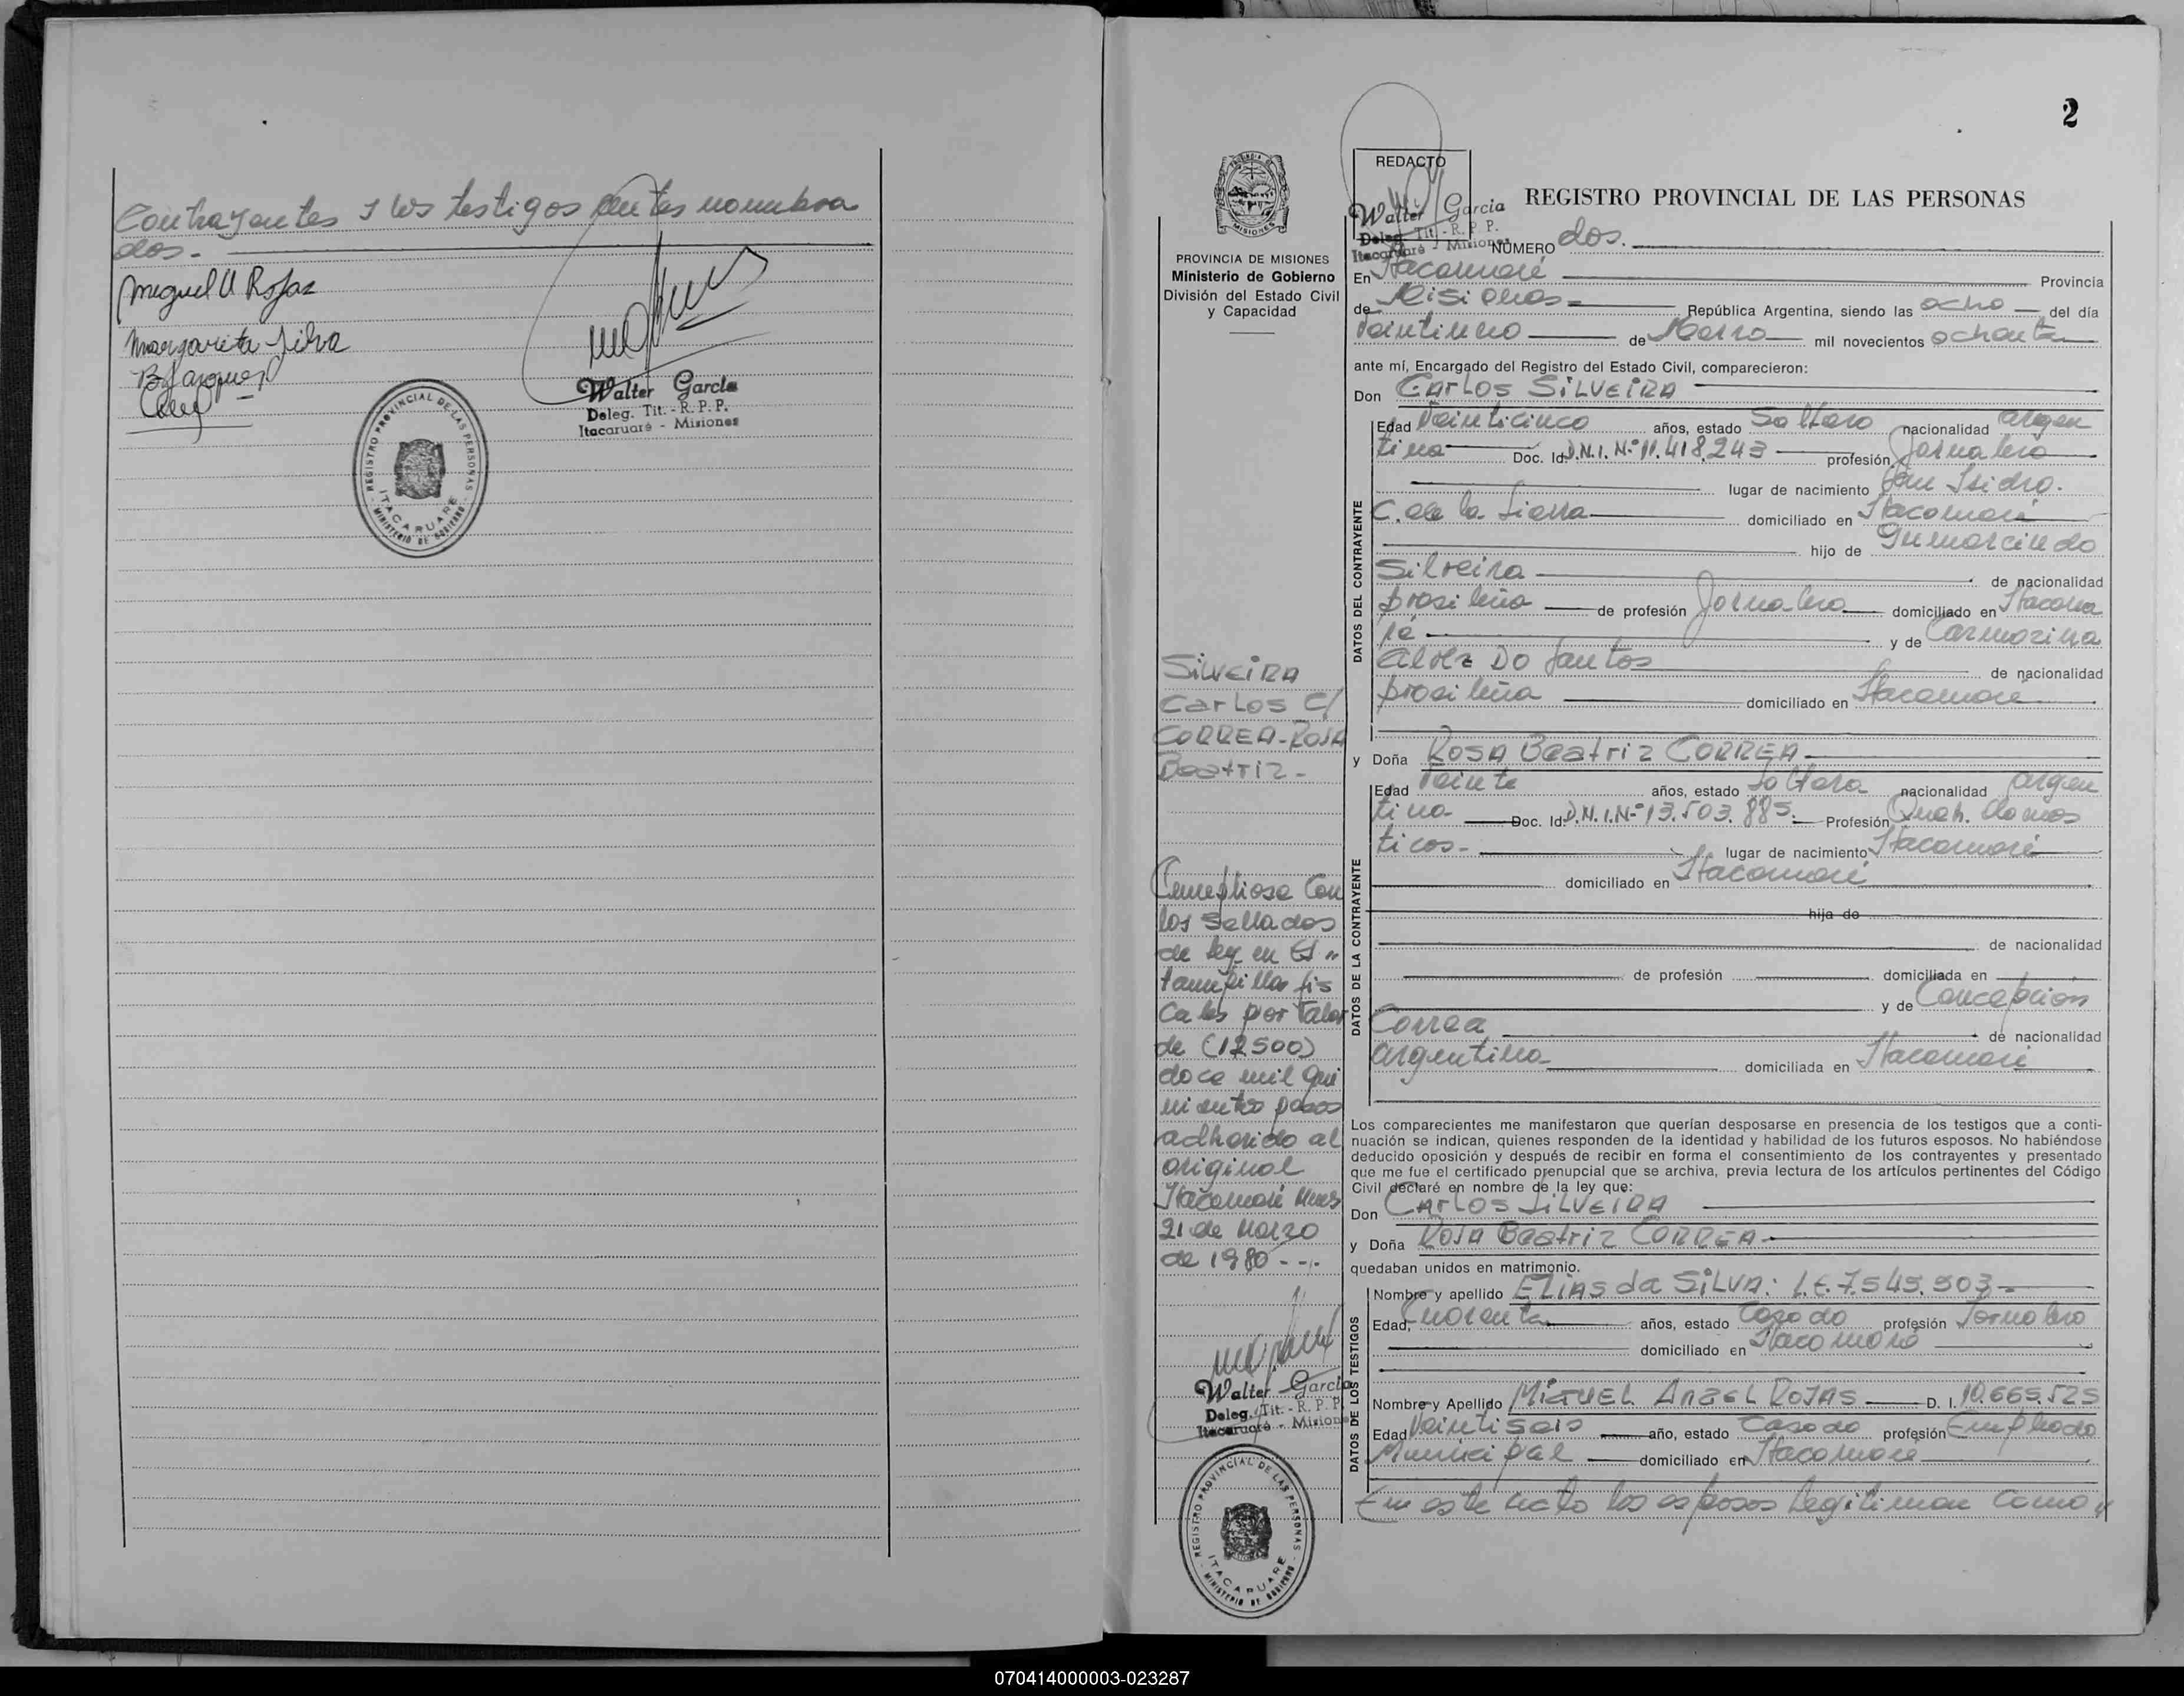 Contrayentes y los testigos antes nombra
dos.-
Miguel A Rojas
Margarita Silva
B Vasquez
Walter Garcia
Deleg. Tit. - R. P. P.
Itacaruaré - Misiones
REGISTRO PROVINCIAL DE LAS PERSONAS
ITACARUARE
MINISTERIO DE GOBIERNO
2
PROVINCIA DE MISIONES
Ministerio de Gobierno
División del Estado Civil
y Capacidad
SILVEIRA
Carlos C/
CORREA-ROSA
Beatriz-
los sellados
de ley en Es"
tampillas fis
cales por valor
de (12500)
doce mil qui
nientos pesos
adherido al
original
Itacaruaré Mnes
21 de Marzo
de 1980--.-
Walter Garcia
Deleg. Tit. - R. P. P.
Itacaruaré - Misiones
REGISTRO PROVINCIAL DE LAS PERSONAS
ITACARUARE
MINISTERIO DE GOBIERNO
REDACTO
Walter Garcia
Deleg. Tit. - R. P. P.
Itacaruaré - Misiones
REGISTRO PROVINCIAL DE LAS PERSONAS
NÚMERO dos.
En Itacaruaré Provincia
de Misiones= República Argentina, siendo las ocho del día
veintiuno de Marzo mil novecientos ochenta
ante mí, Encargado del Registro del Estado Civil, comparecieron:
Don CARLOS SILVEIRA
DATOS DEL CONTRAYENTE
Edad veinticinco años, estado Soltero nacionalidad argen
tina Doc. Id. D.N.I. Nº 11.418.243 profesión Jornalero
lugar de nacimiento San Isidro.
C. de la Sierra domiciliado en Itacaruaré
hijo de Gumarcindo
Silveira de nacionalidad
brasileña de profesión Jornalero domiciliado en Itacarua
ré y de Carmozina
Alvez Do Santos de nacionalidad
brasileña domiciliado en Itacaruaré
y Doña ROSA Beatriz CORREA
DATOS DE LA CONTRAYENTE
Edad veinte años, estado Soltera nacionalidad argen
tina Doc. Id. D.N.I. Nº 13.503.885. Profesión Queh. domes
ticos- lugar de nacimiento Itacaruaré
domiciliado en Itacaruaré
hija de
de nacionalidad
de profesión domiciliada en
y de Concepción
Correa de nacionalidad
argentina domiciliada en Itacaruaré
Los comparecientes me manifestaron que querían desposarse en presencia de los testigos que a conti-
nuación se indican, quienes responden de la identidad y habilidad de los futuros esposos. No habiéndose
deducido oposición y después de recibir en forma el consentimiento de los contrayentes y presentado
que me fue el certificado prenupcial que se archiva, previa lectura de los artículos pertinentes del Código
Civil declaré en nombre de la ley que:
Don CARLOS SILVEIRA
y Doña ROSA Beatriz CORREA-
quedaban unidos en matrimonio.
DATOS DE LOS TESTIGOS
Nombre y apellido ELIAS da SILVA: L.E. 7.545.903-
Edad, cuarenta años, estado Casado profesión Jornalero
domiciliado en Itacaruaré
Nombre y Apellido MIGUEL ANGEL ROJAS D. I. 10.665.525
Edad veintiseis año, estado Casado profesión Empleado
Municipal domiciliado en Itacaruaré
En este acto los esposos legitiman como"
070414000003-023287